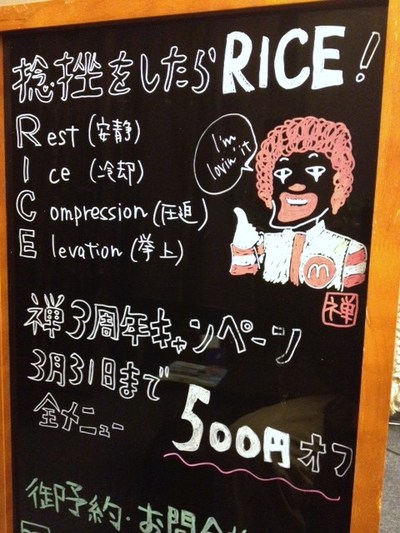 捻挫をしたらRICE!
Rest (安静)
Ice (冷却)
Compression (圧迫)
Elevation (挙上)
I'm
lovin' it
m
禅
禅3周年キャンペーン
3月31日まで
全メニュー
500円オフ
御予約・お問合